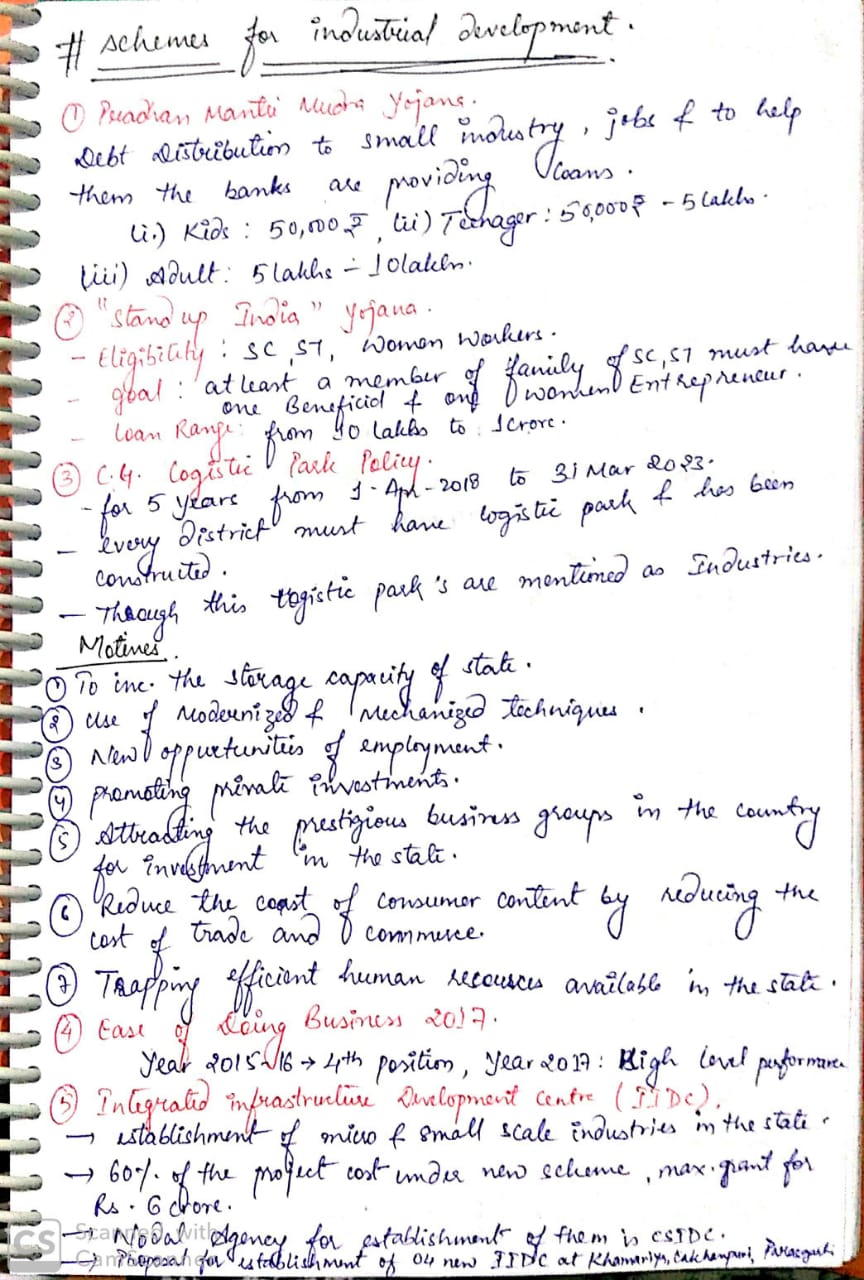 # schemes for industrial development.
① Pradhan Mantri Mudra Yojana.
Debt Distribution to small industry, jobs & to help
them the banks are providing loans.
(i.) Kids : 50,000 ₹, (ii) Teenager : 50,000₹ - 5 lakhs.
(iii) Adult : 5 lakhs - 10 lakhs.
② "Stand up India" Yojana.
- Eligibility : SC, ST, women workers.
- goal : at least a member of family of SC, ST must have
one Beneficial & one women Entrepreneur.
- Loan Range: from 10 lakhs to 1 crore.
③ C.G. Logistic Park Policy.
- for 5 years from 1-Apr-2018 to 31 Mar 2023.
- every District must have logistic park & has been
constructed.
- Through this logistic park's are mentioned as Industries.
Motives.
① To inc. the storage capacity of state.
② use of Modernized & Mechanized techniques.
③ New oppurtunities of employment.
④ promoting private investments.
⑤ Attracting the prestigious business groups in the country
for investment in the state.
⑥ Reduce the coast of consumer content by reducing the
cost of trade and commerce.
⑦ Trapping efficient human recources available in the state.
④ Ease of Doing Business 2017.
Year 2015-16 → 4th position, Year 2017 : High level performance
⑤ Integrated infrastructure Development Centre (IIDC).
→ establishment of micro & small scale industries in the state.
→ 60% of the project cost under new scheme, max. grant for
Rs. 6 crore.
→ Nodal Agency for establishment of them is CSIDC.
→ Proposal for establishment of 04 new IIDC at Khamariya, Lakhanpuri, Parasguli
CS Scanned with
CamScanner